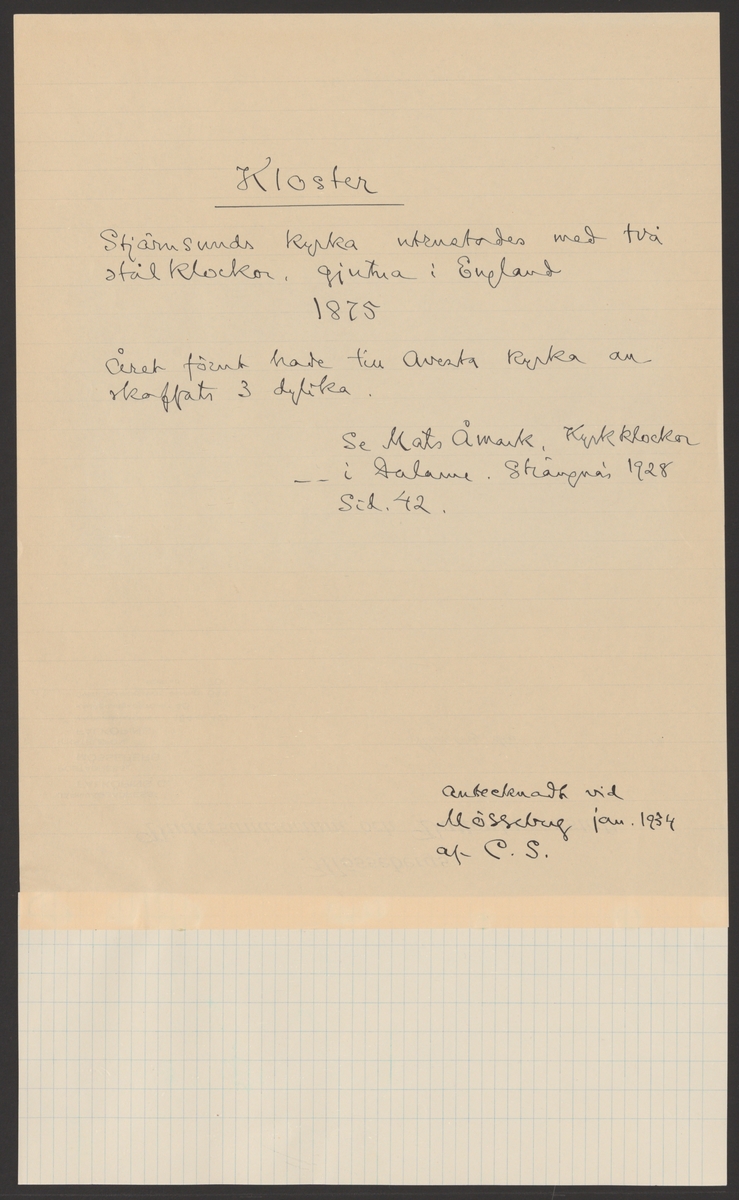 Kloster
Stjärnsunds kyrka utrustades med två
stålklockor, gjutna i England
1875
Året förut hade till Avesta kyrka an-
skaffats 3 dylika.
Se Mats Åmark, Kyrkklockor
— i Dalarne. Strängnäs 1928
Sid. 42.
Antecknadt vid
Mösseberg jan. 1934
af C. S.